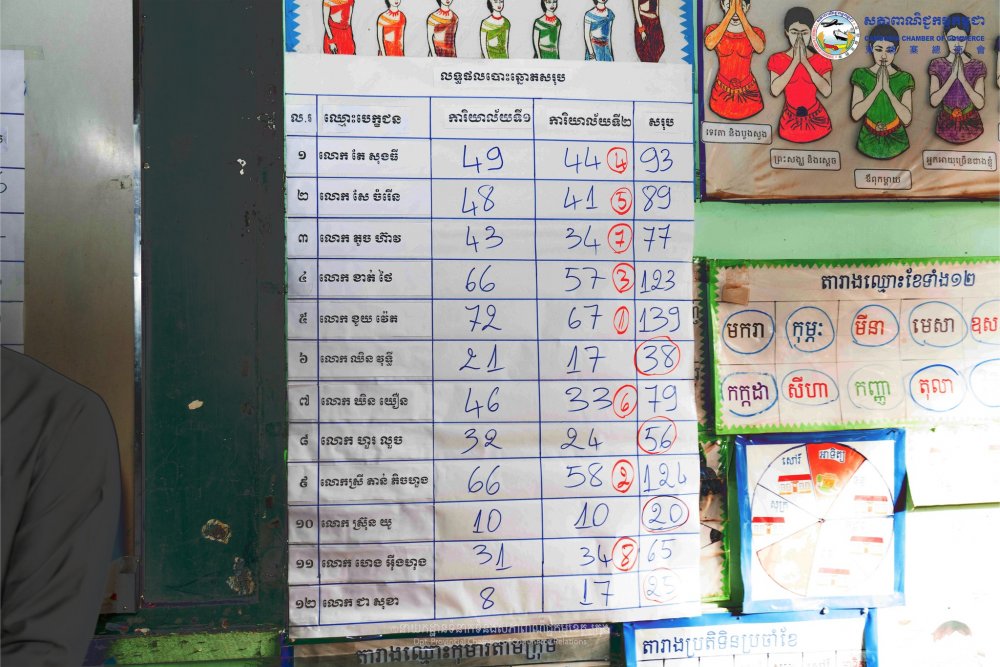 សភាពាណិជ្ជកម្មកម្ពុជា
CAMBODIA CHAMBER OF COMMERCE
柬埔寨總商會
លទ្ធផលបោះឆ្នោតសរុប
ល.រ ឈ្មោះបេក្ខជន ការិយាល័យទី១ ការិយាល័យទី២ សរុប
១ លោក តែ សុងធី 49 44 4 93
២ លោក សែ ចំរើន 48 41 5 89
៣ លោក តូច ហ៊ាវ 43 34 7 77
៤ លោក ខាត់ ថៃ 66 57 3 123
៥ លោក ខួយ វ៉េត 72 67 1 139
៦ លោក ឈិន វុទ្ធី 21 17 38
៧ លោក ឃិន យឿន 46 33 6 79
៨ លោក ហួរ លួច 32 24 56
៩ លោកស្រី តាន់ គិចហួង 66 58 2 124
១០ លោក ស្រ៊ុន យូ 10 10 20
១១ លោក ហេង អ៊ីងហុង 31 34 8 65
១២ លោក ជា សុខា 8 17 25
ទេវតា និងបួងសួង
ព្រះសង្ឃ និងស្តេច
ឪពុកម្តាយ
អ្នកអាយុច្រើនជាងខ្ញុំ
តារាងឈ្មោះខែទាំង១២
មករា កុម្ភៈ មីនា មេសា ឧស
កក្កដា សីហា កញ្ញា តុលា
សៅរ៍ អាទិត្យ
សុក្រ
តារាងឈ្មោះកុមារតាមក្រុម
តារាងប្រតិទិនប្រចាំខែ